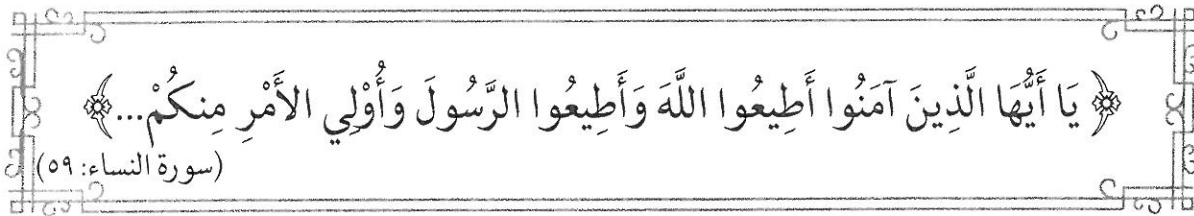 ﴿ يَا أَيُّهَا الَّذِينَ آمَنُوا أَطِيعُوا اللَّهَ وَأَطِيعُوا الرَّسُولَ وَأُوْلِي الأَمْرِ مِنكُمْ...﴾
(سورة النساء: ٥٩)